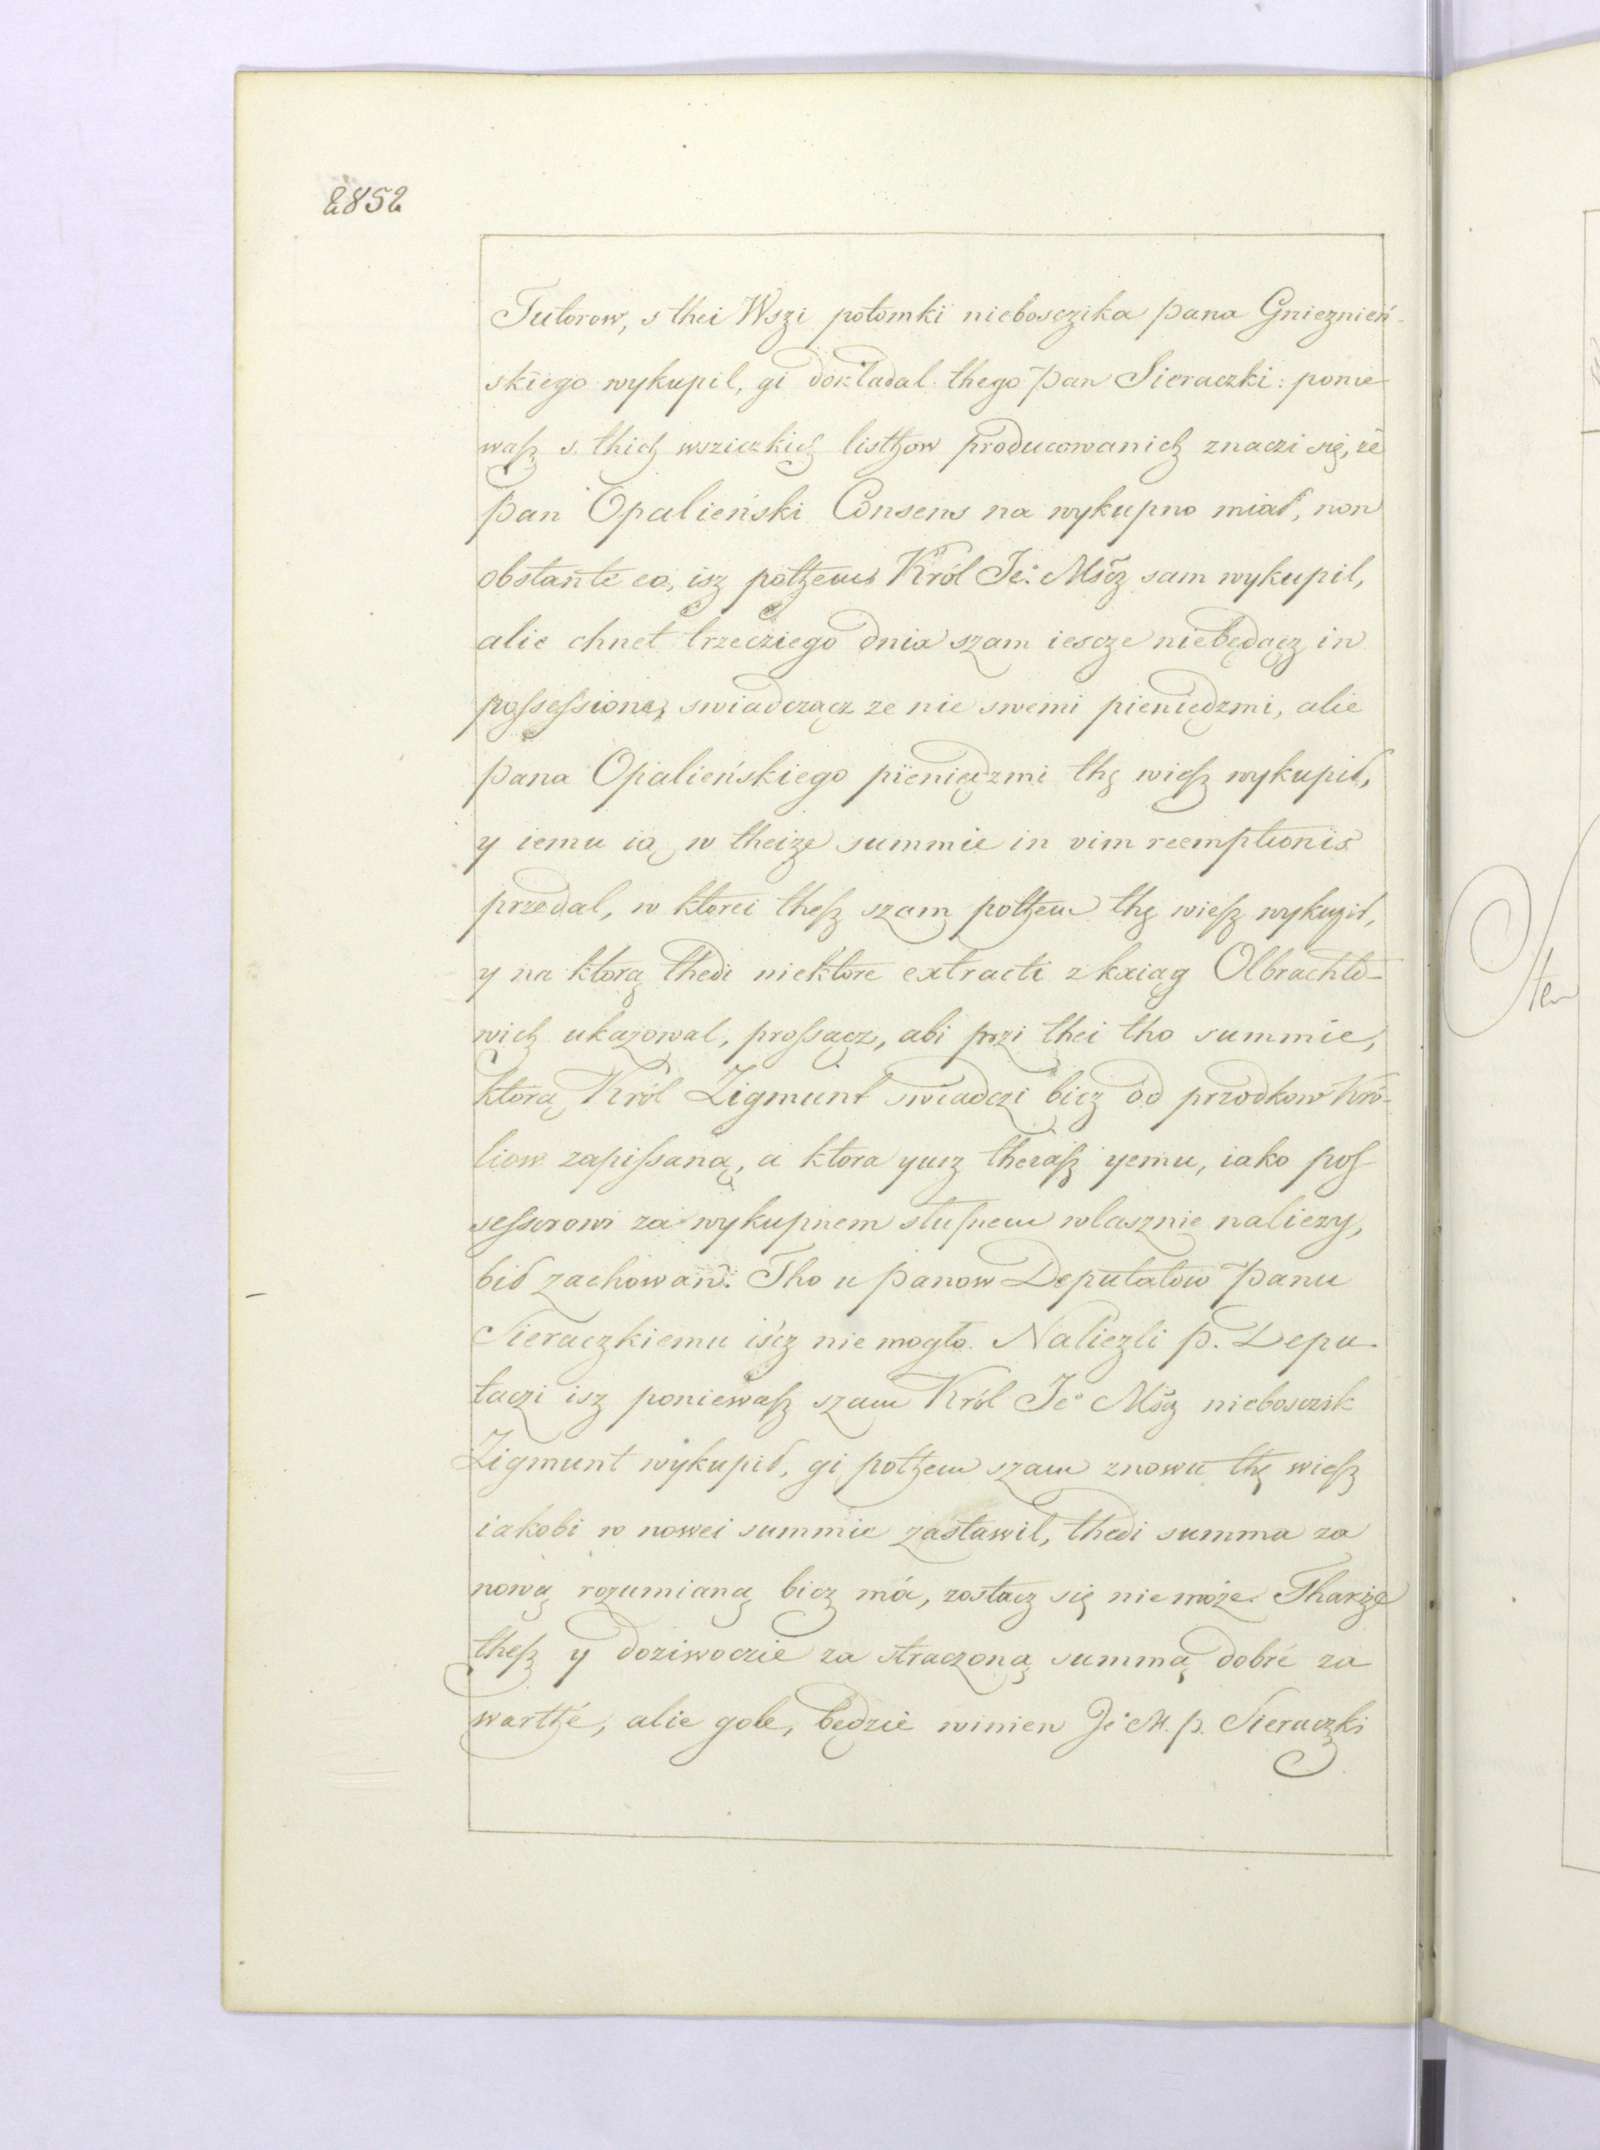 2852
Tutorow, s thei Wszi potomki nieboszczika pana Gnieznień-
skiego wykupil, gi dokładal thego pan Sieraczki: ponie-
wasz s thich wsziczkich listhow producowanich znaczi się, że
pan Opalieński Consens na wykupno miał, non
obstante eo, isz pothem Król Je° Mśćz sam wykupil,
alie chnet trzecziego dnia szam iescze niebędącz in
possessione, swiadcząc ze nie swemi pieniędzmi, alie
pana Opalieńskiego pieniędzmi thę wiesz wykupił,
y iemu ią w theize summie in vim reemptionis
przedal, w ktorei thesz szam pothem thę wiesz wykupił,
y na ktorą thedi niektore extracti z kxiąg Olbrachto-
wich ukazowal, prossącz, abi przi thei tho summie,
ktorą Król Zigmunt swiadczi bicz od przodkow Kró-
liow zapissaną, a ktora yusz therasz yemu, iako pos-
sessorowi za wykupnem słusnem wlasznie naliezy,
bił zachowan. Tho u panow Deputatow panu
Sieraczkiemu iścz nie mogło. Naliezli p. Depu-
taczi isz poniewasz szam Król Je° Mścz nieboszczik
Zigmunt wykupił, gi pothem szam znowu thę wiesz
iakobi w nowei summie zastawil, thedi summa za
nową rozumianą bicz má, zostacz się nie może. Tharze
thesz y doziwoczie za straczoną summą dobre za
warthé, alie gole, będzie winien Je° M. p. Sieraczki